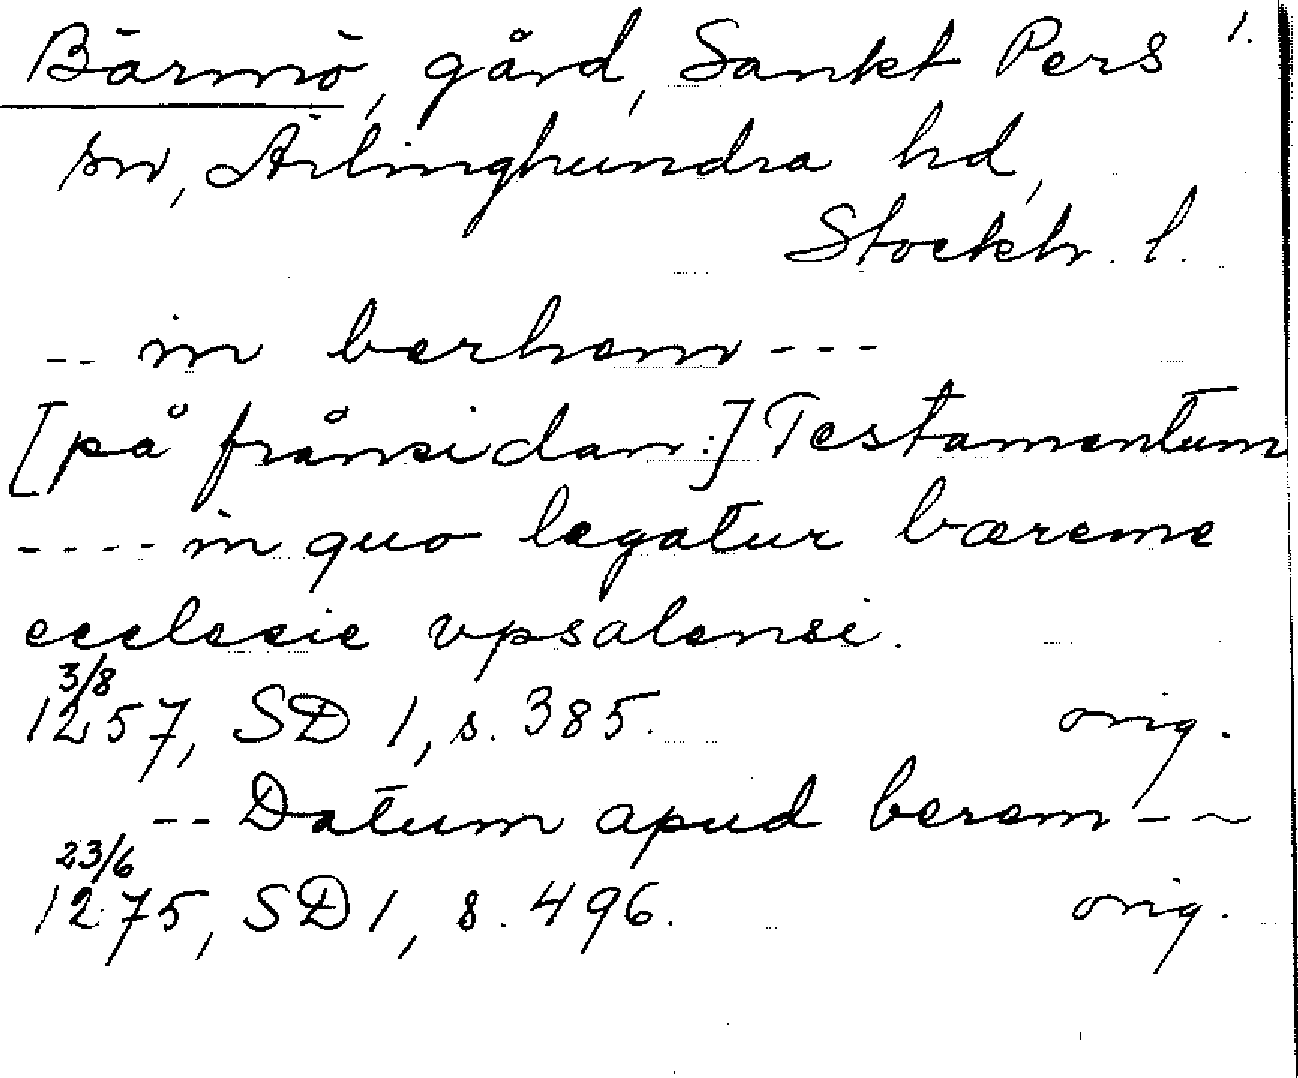 Bärmö, gård, Sankt Pers 1.
sn, Ärlinghundra hd,
Stockh. l.
-- in berhem ---
[på frånsidan:] Testamentum
---- in quo legatur bæreme
ecclesie vpsalensi.
3/8
1257, SD 1, s. 385. orig.
-- Datum apud berem --~
23/6
1275, SD 1, s. 496. orig.